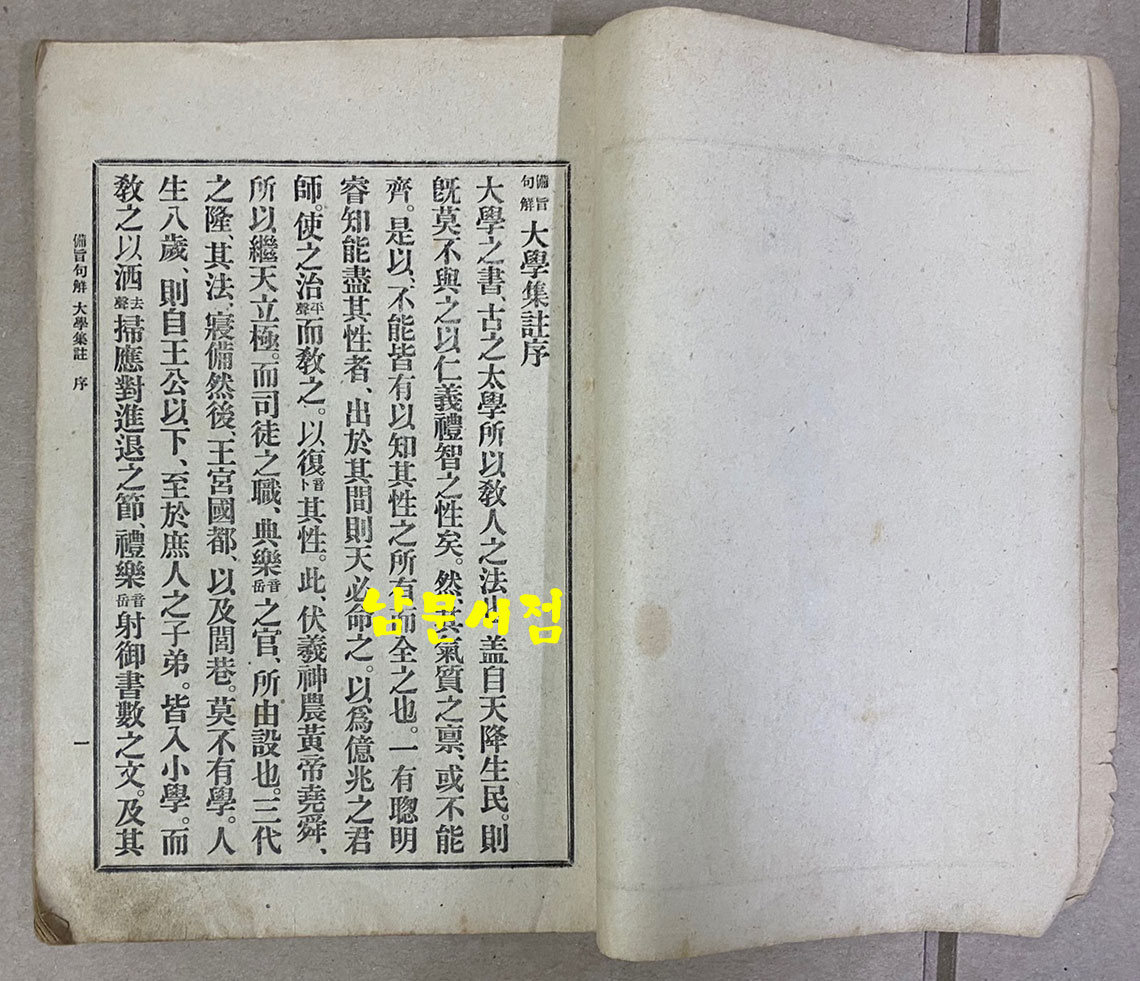 備旨句解 大學集註序
大學之書、古之太學所以敎人之法也盖自天降生民。則
旣莫不與之以仁義禮智之性矣。然其氣質之禀、或不能
齊。是以、不能皆有以知其性之所有而全之也。一有聰明
睿知能盡其性者、出於其間則天必命之。以爲億兆之君
師。使之治平聲而敎之。以復音卜其性。此、伏羲神農黃帝堯舜、
所以繼天立極。而司徒之職、典樂音岳之官、所由設也。三代
之隆、其法、寖備然後、王宮國都、以及閭巷。莫不有學。人
生八歲、則自王公以下、至於庶人之子弟。皆入小學。而
敎之以洒去聲掃應對進退之節、禮樂音岳射御書數之文。及其
備旨句解 大學集註 序 一
남문서점